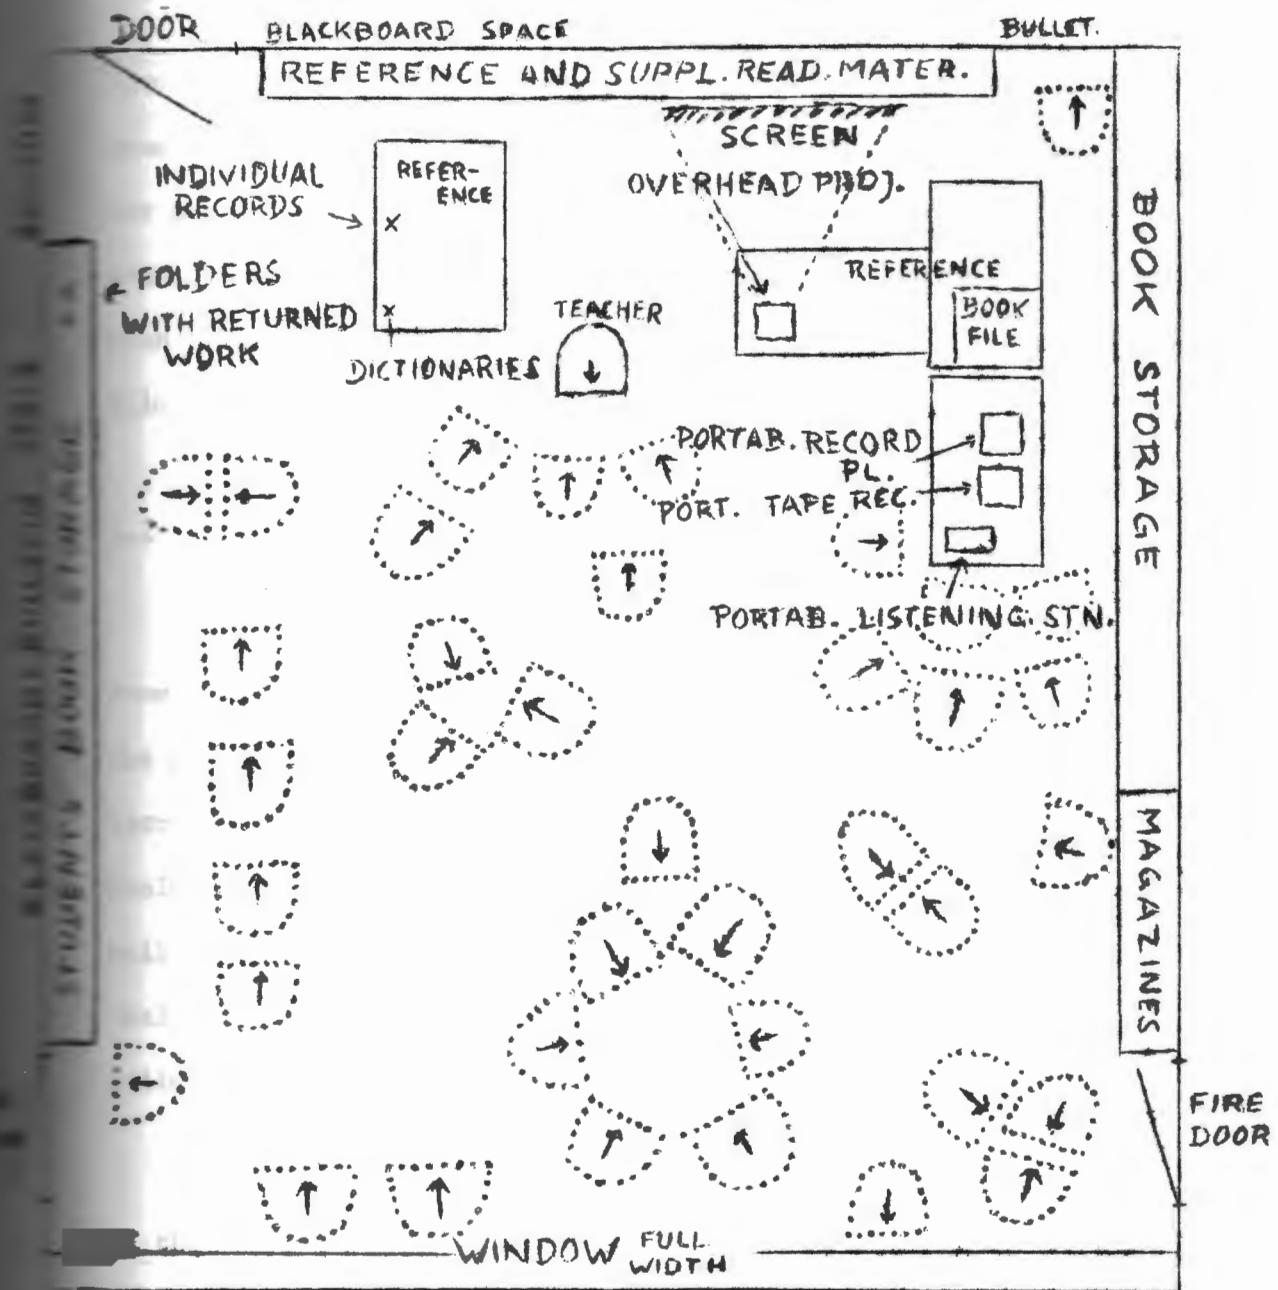 DOOR
BLACKBOARD SPACE
BULLET.
REFERENCE AND SUPPL. READ. MATER.
SCREEN
OVERHEAD PROJ.
INDIVIDUAL
RECORDS
REFER-
ENCE
FOLDERS
WITH RETURNED
WORK
DICTIONARIES
TEACHER
REFERENCE
BOOK
FILE
BOOK STORAGE
PORTAB. RECORD
PL.
PORT. TAPE REC.
PORTAB. LISTENING. STN.
STUDENTS BOOK STORAGE
MAGAZINES
FIRE
DOOR
WINDOW FULL
WIDTH